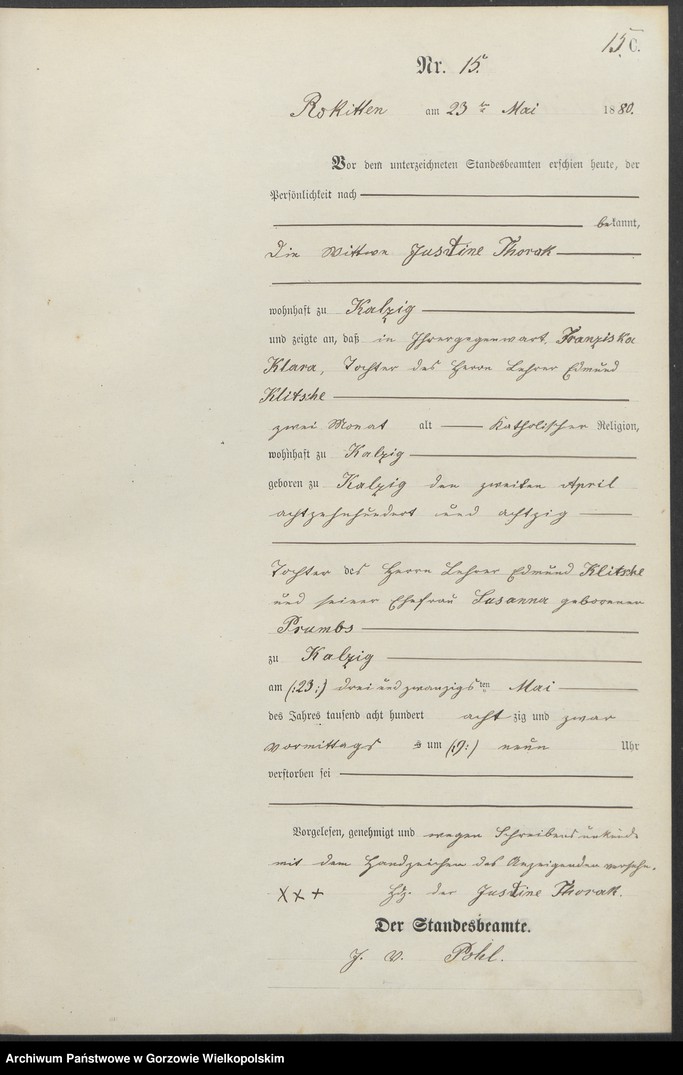 15. C.
Nr. 15.
Rokitten am 23ten Mai 1880.
Vor dem unterzeichneten Standesbeamten erschien heute, der
Persönlichkeit nach
bekannt,
die Wittwe Justine Thorak
wohnhaft zu Kalzig
und zeigte an, daß in Ihrergegenwart, Franziska
Klara, Tochter des Herrn Lehrer Edmund
Klitsche
zwei Monat alt Katholischer Religion,
wohnhaft zu Kalzig
geboren zu Kalzig den zweiten April
achtzehnhundert und achtzig
Tochter des Herrn Lehrer Edmund Klitsche
und seiner Ehefrau Susanna geborenen
Prumbs
zu Kalzig
am (:23:) drei und zwanzigsten Mai
des Jahres tausend acht hundert achtzig und zwar
vormittags um (:9:) neun Uhr
verstorben sei
Vorgelesen, genehmigt und wegen Schreibensunkunde
mit dem Handzeichen des Anzeigenden versehn.
XXX Hdz. der Justine Thorak.
Der Standesbeamte.
J. V. Pohl.
Archiwum Państwowe w Gorzowie Wielkopolskim